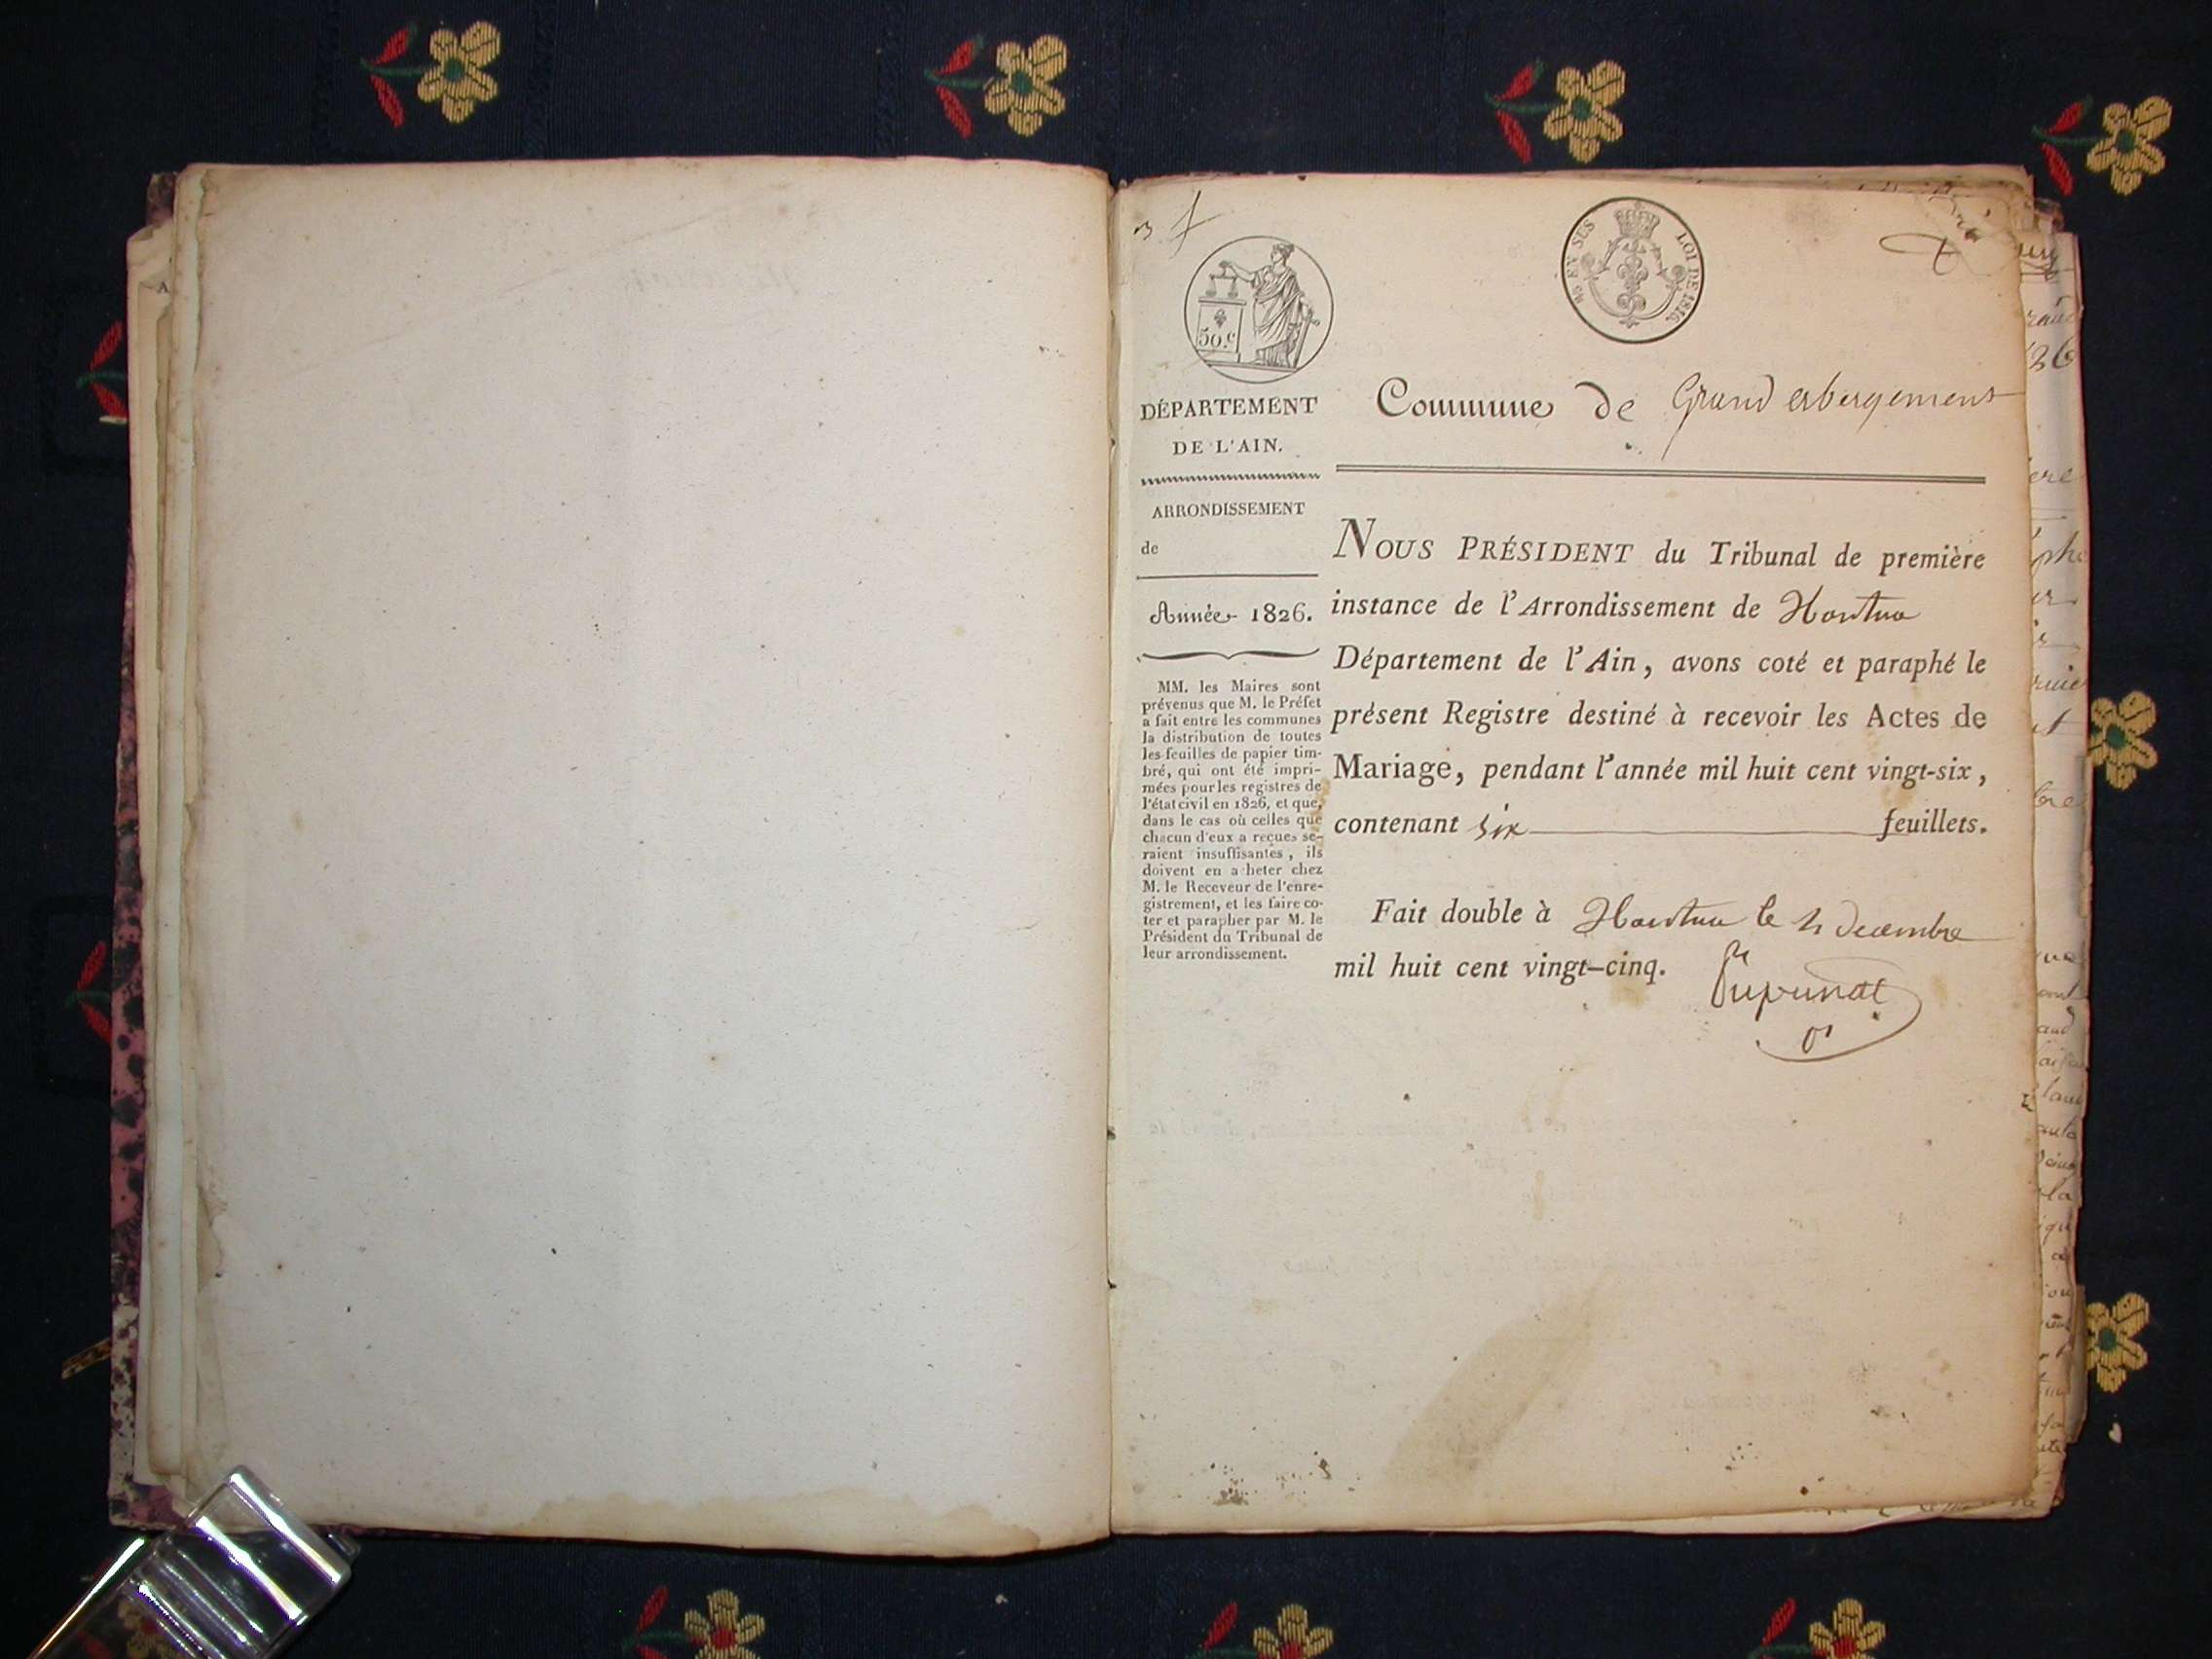 3
50.c
MG EN SUS
LOI DE 1816.
DÉPARTEMENT
DE L'AIN.
ARRONDISSEMENT
de
Année 1826.
MM. les Maires sont
prévenus que M. le Préfet
a fait entre les communes
la distribution de toutes
les feuilles de papier tim-
bré, qui ont été impri-
mées pour les registres de
l'état civil en 1826, et que,
dans le cas où celles que
chacun d'eux a reçues se-
raient insuffisantes, ils
doivent en a heter chez
M. le Receveur de l'enre-
gistrement, et les faire co-
ter et parapher par M. le
Président du Tribunal de
leur arrondissement.
Commune de Grand abergement
NOUS PRÉSIDENT du Tribunal de première
instance de l'Arrondissement de Nantua
Département de l'Ain, avons coté et paraphé le
présent Registre destiné à recevoir les Actes de
Mariage, pendant l'année mil huit cent vingt-six,
contenant six feuillets.
Fait double à Nantua le decembre
mil huit cent vingt-cinq.